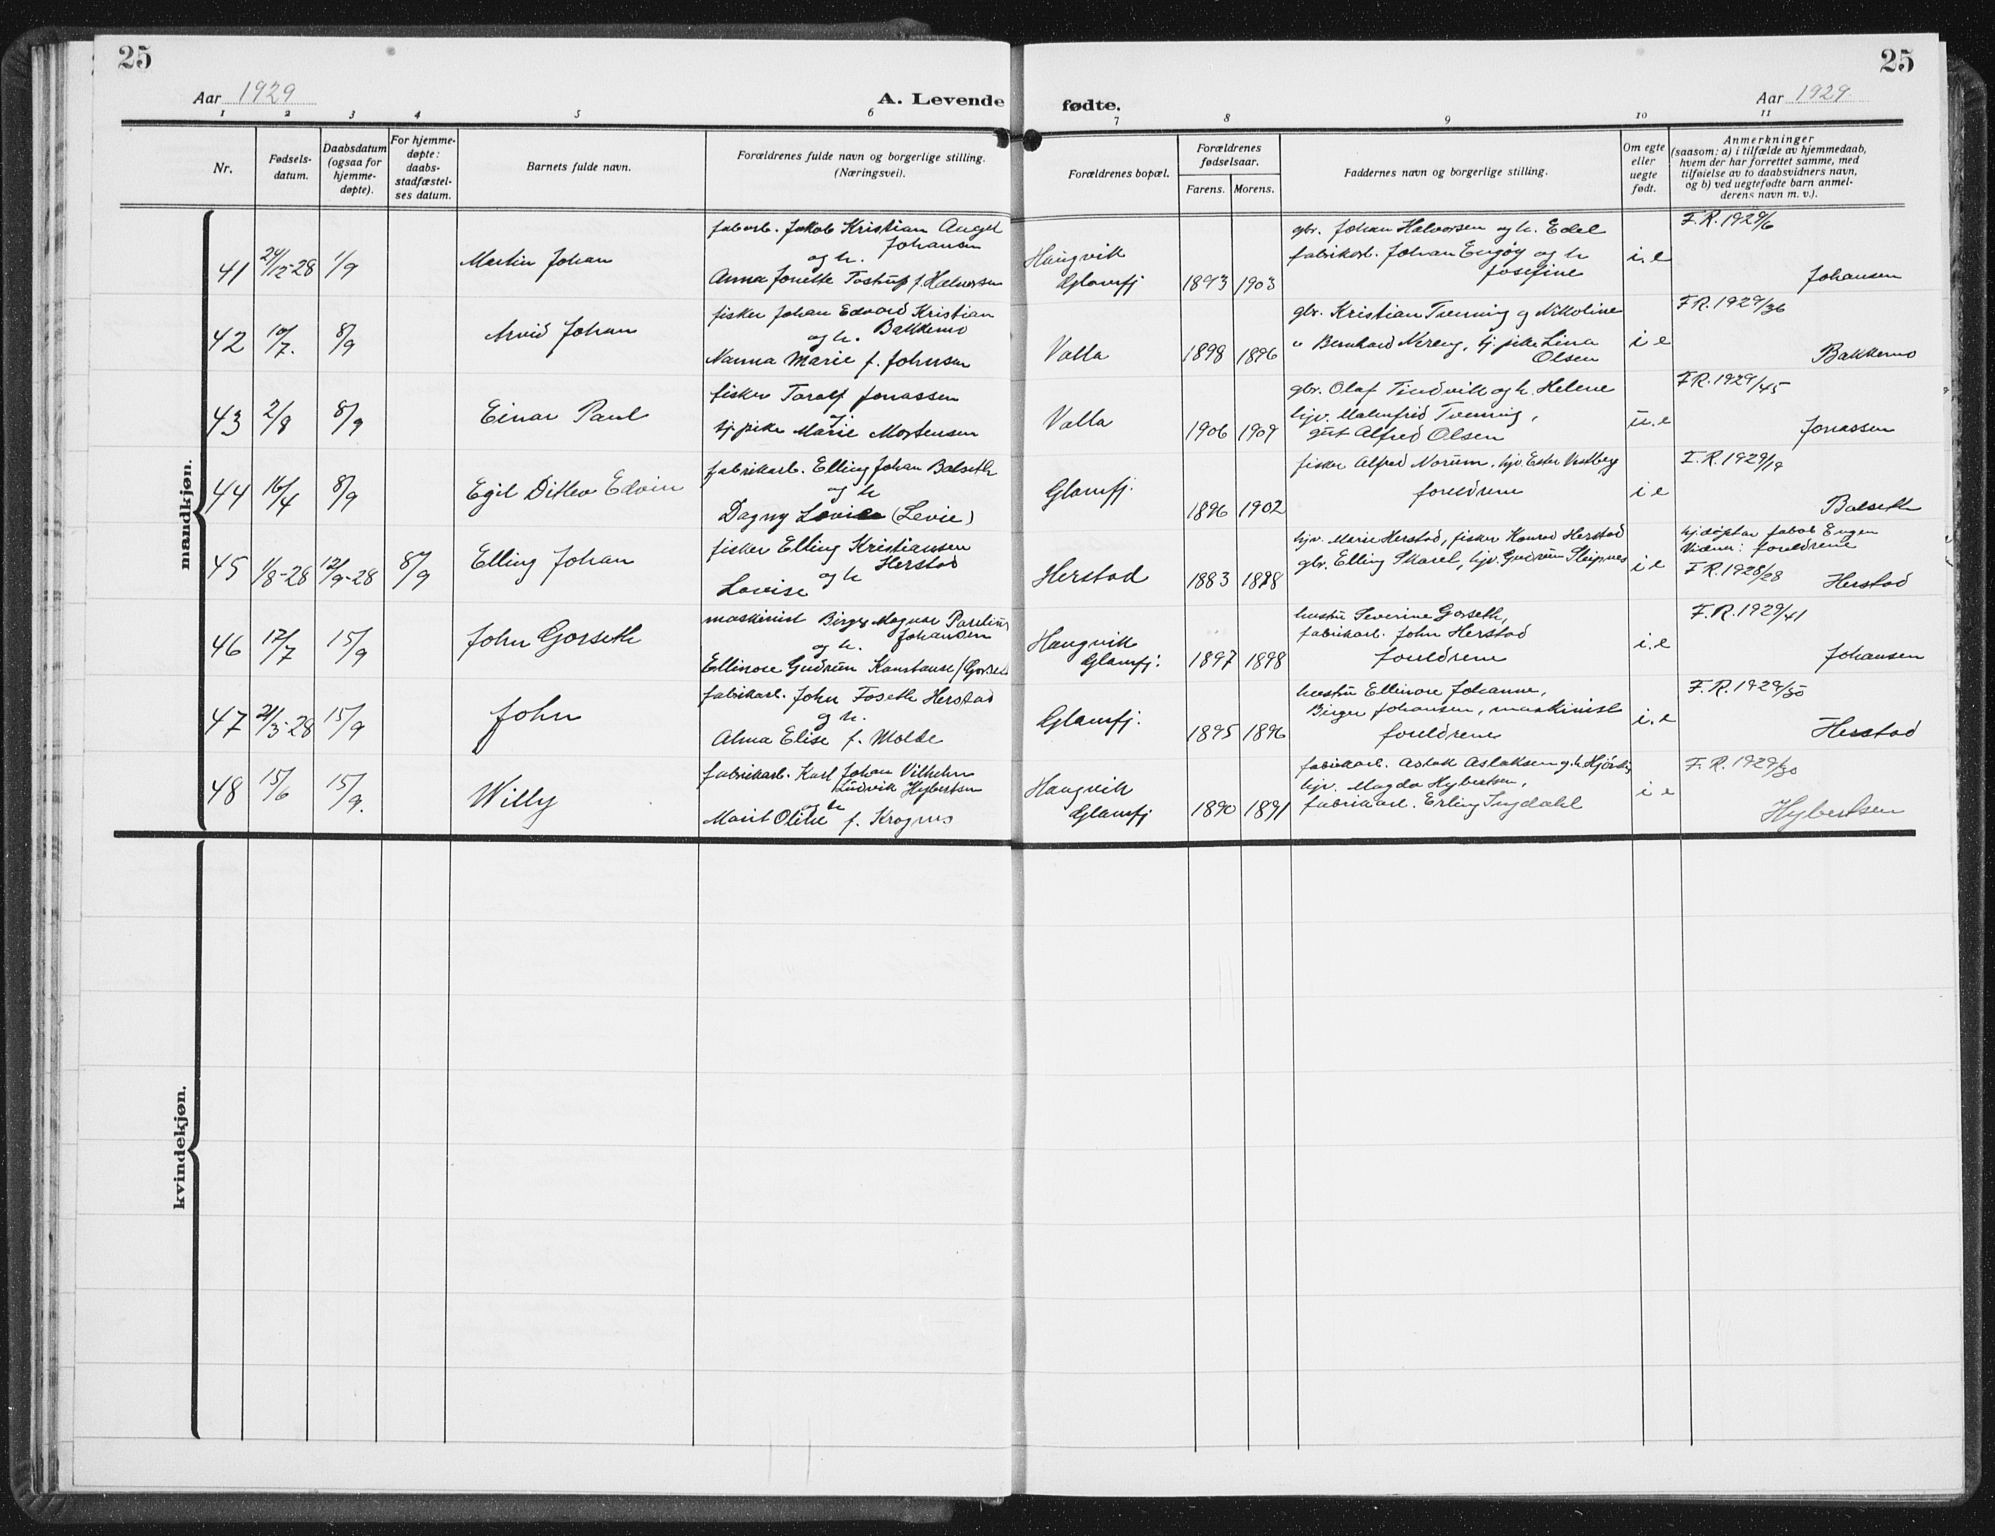 25
25
Aar 1929
A. Levende fødte.
Aar 1929
1 2 3 4 5 6 7 8 9 10 11
Nr.
Fødsels-
datum.
Daabsdatum
(ogsaa for
hjemme-
døpte).
For hjemme-
døpte:
daabs-
stadfæstel-
ses datum.
Barnets fulde navn.
Forældrenes fulde navn og borgerlige stilling.
(Næringsvei).
Forældrenes bopæl.
Forældrenes
fødselsaar.
Farens. Morens.
Faddernes navn og borgerlige stilling.
Om egte
eller
uegte
født.
Anmerkninger
(saasom: a) i tilfælde av hjemmedaab,
hvem der har forrettet samme, med
tilføielse av to daabsvidners navn,
og b) ved uegtefødte barn anmel-
derens navn m. v.).
mandkjøn.
41 29/12-28 1/9
Martin Johan
Jakob Kristian Angel
Johansen
og h.
Anna Jonette Tostrup f. Halvorsen
Haugvik
Glomfj
1893 1903
gbr. Johan Halvorsen og h. Edel
fabrikarb. Johan Engøy og h
Josefine
i.e
F.R. 1929/6
Johansen
42 10/7. 8/9
Arvid Johan
fisker Johan Edvard Kristian
Bakkemo
og h.
Nanna Marie f. Johnsen
Valla
1898 1896
gbr. Kristian Tvenning og Nikoline
" Bernhard Nereng, tj. pike Lina
Olsen
i e
F.R. 1929/36
Bakkemo
43 2/8 8/9
Einar Paul
fisker Toralf Jonassen
og
tj. pike Marie Mortensen
Valla
1906 1909
gbr. Olaf Tindvik og h. Helene
hjv. Malmfrid Tvenning,
gut Alfred Olsen
u.e
F.R. 1929/45
Jonassen
44 16/4 8/9
Egil Ditlev Edvin
fabrikarb. Elling Johan Balseth
og h
Dagny (Levie)
Glomfj.
1896 1902
fisker Alfred Norum, hjv. Ester Vestberg
foreldrene
i e
F.R. 1929/19
Balseth
45 1/8-28 12/9-28 8/9
Elling Johan
fisker Elling Kristiansen
Herstad
og h
Lovise
Herstad
1883 1888
hjv. Marie Herstad, fisker Konrad Herstad
gbr. Elling Skarel, hjv. Gudrun Sleipnes
i e
hj.døpt av Jakob Engen
Vidner: foreldrene
F.R. 1928/28
Herstad
46 17/7 15/9
John Gorseth
maskinist Birger Magnus Paulinus
Johansen
og h.
Ellinore Gudrun Konstanse
Haugvik
Glomfj.
1897 1898
hustru Severine Gorseth,
fabrikarb. John Herstad
foreldrene
i.e
F.R. 1929/41
Johansen
47 21/3-28 15/9
John
fabrikarb. John Foseth Herstad
og h.
Alma Elise f. Molde
Glomfj.
1895 1896
hustru Ellinore Johanne,
Birger Johansen, maskinist
foreldrene
i.e
F.R. 1929/50
Herstad
48 15/6 15/9.
Willy
fabrikarb. Karl Johan Vilhelm
Ludvik Hybertsen
og h
Marit Oline f. Krognes
Haugvik
Glomfj
1890 1891
fabrikarb. Aslak Aslaksen og h Hjørdis
hjv. Magda Hybertsen,
fabrikarb. Erling Ingdahl
i e
F.R. 1929/30
Hybertsen
kvindekjøn.